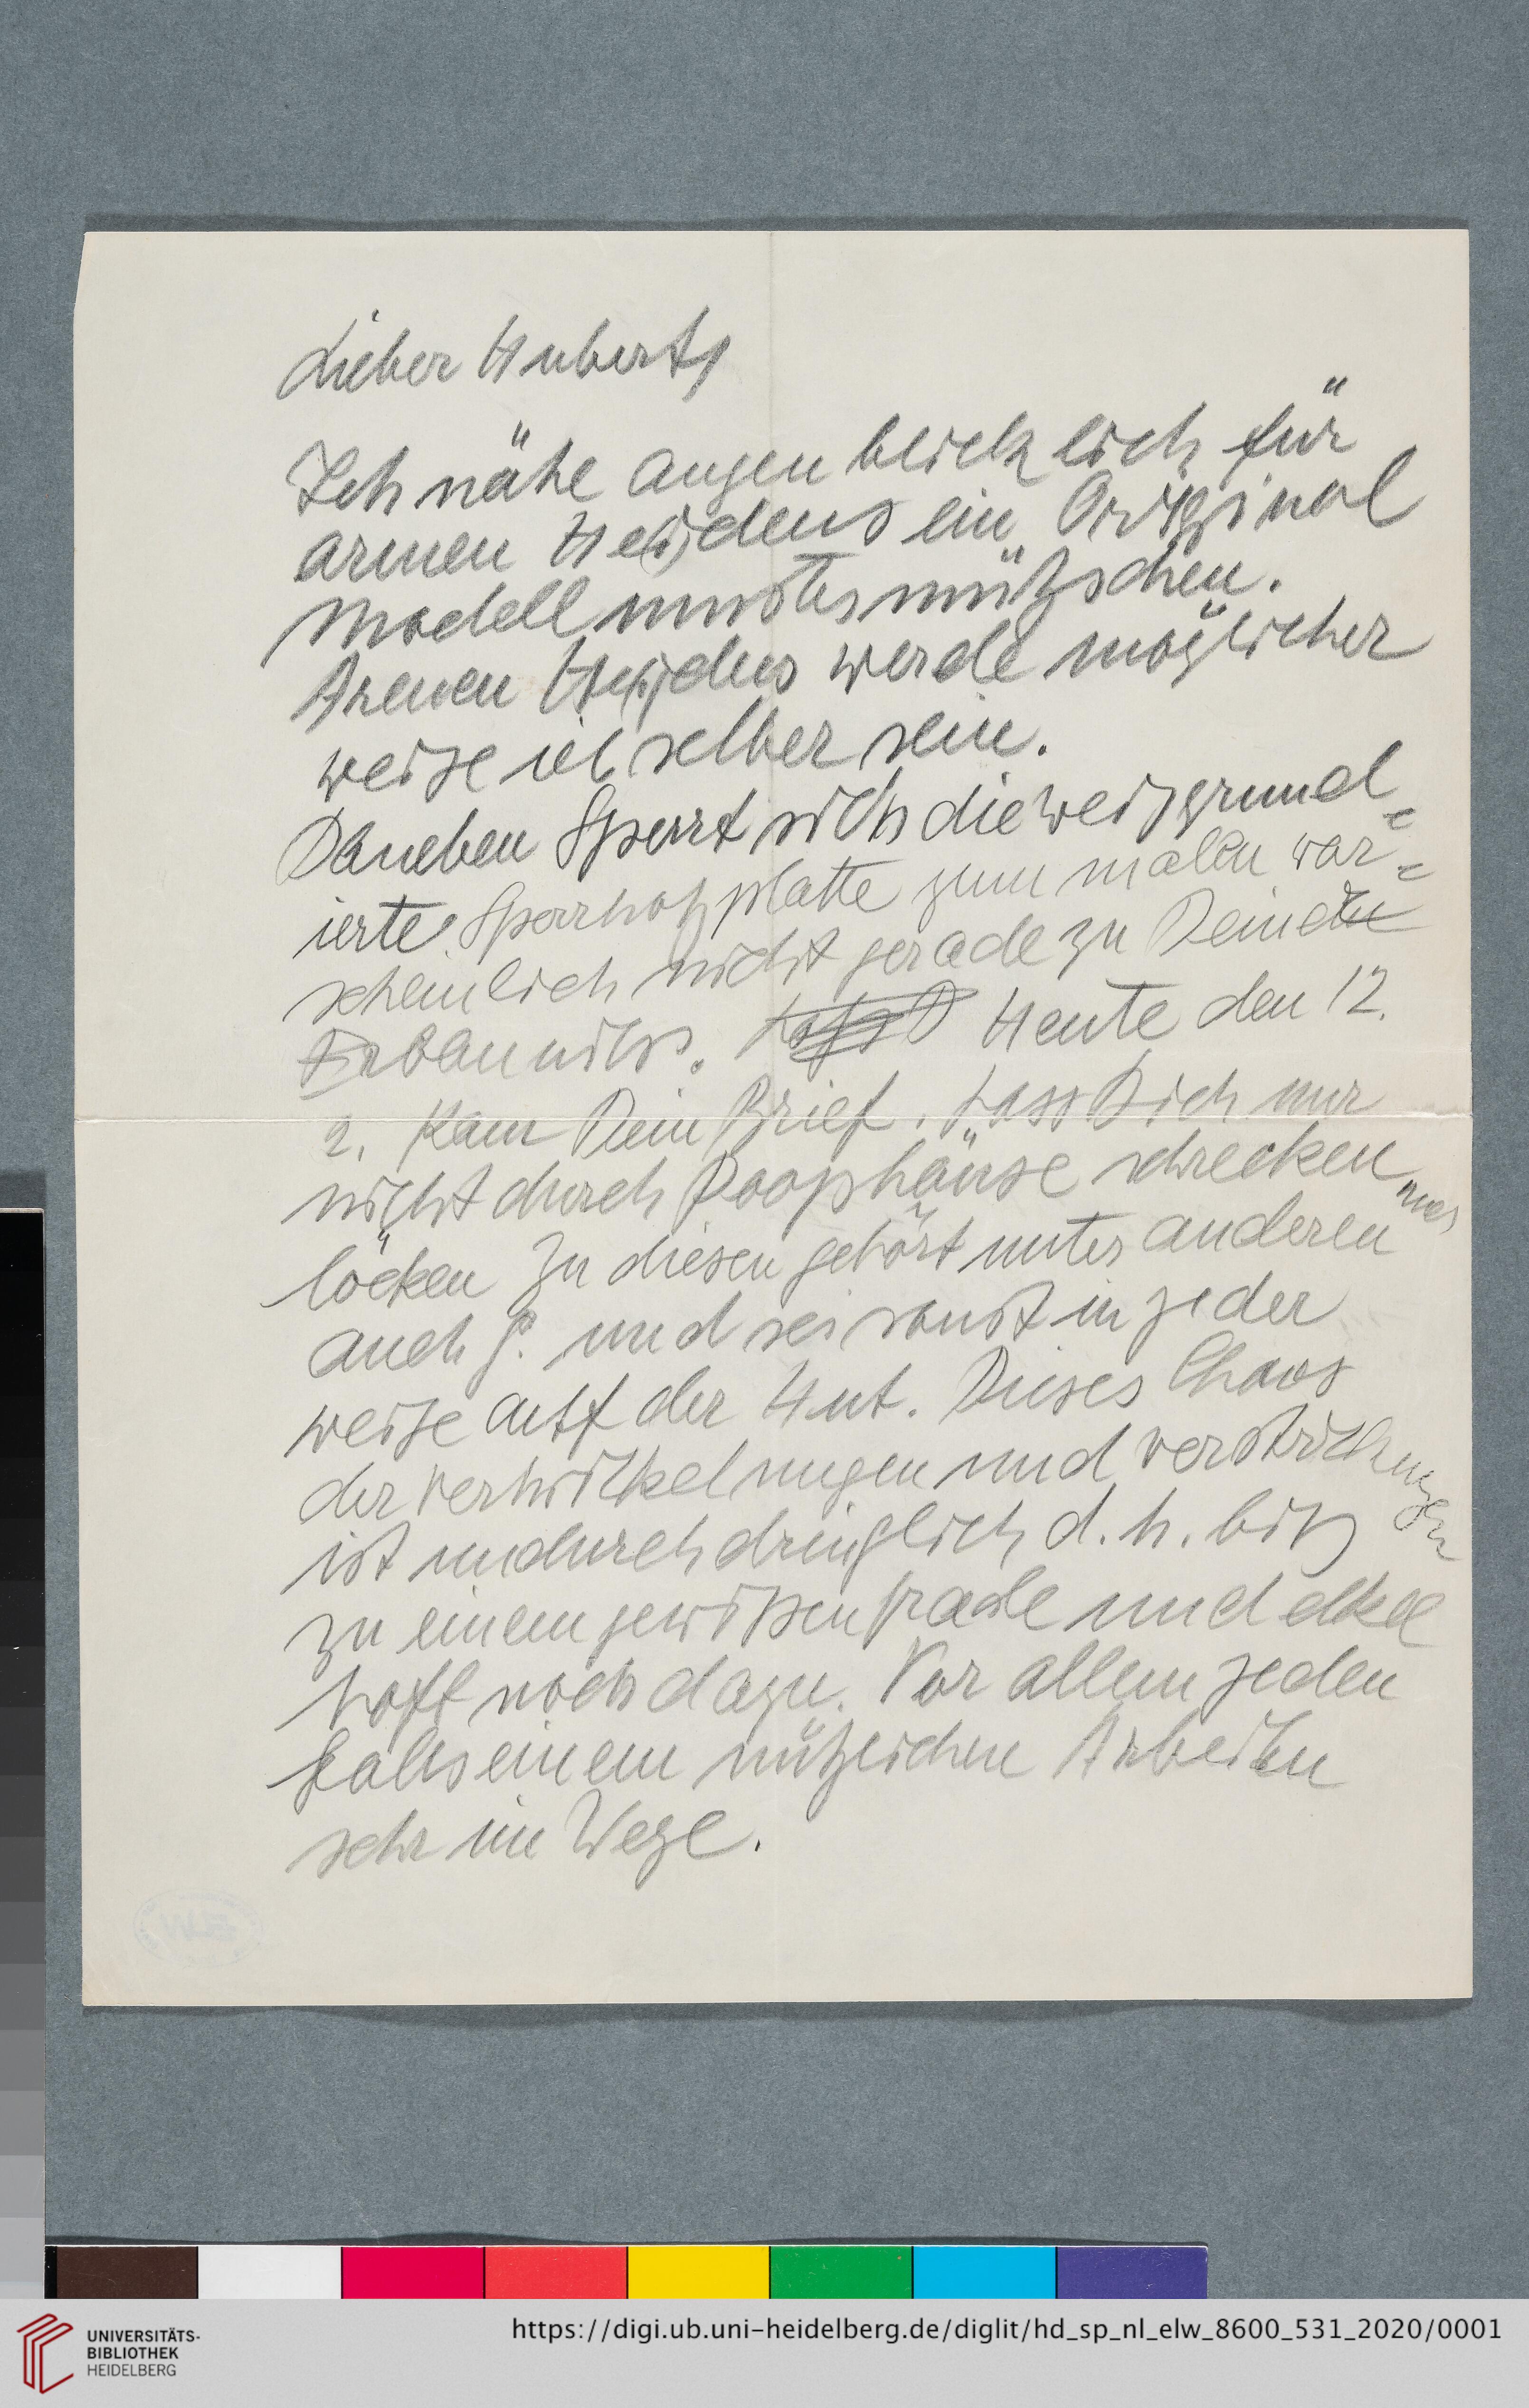 Lieber Hubert,
Ich nähe augenblicklich für
armen He(i)dens ein Original
Modellmustermützchen.
Armen He(i)dens werde möglicher
weise ich selber sein.
Daneben Sperrt sich die weiszgrund=
ierte Sperrholzplatte zum malen war=
scheinlich nicht gerade zu Deinem
Heute den 12.
2. Kam Dein Brief. Lass Dich nur
nicht durch schrecken
löcken Zu diesen gehört unter anderen
auch P. und sei sonst in jeder
weise auf der Hut. Dieses Chaos
der verwikkelnugen und verstrickungen
ist undurchdringlich d. h. bis
zu einem gewissen grade und ekel
haft noch dazu. Vor allem jeden
falls einem nützlichen Arbeiten
sehr im Wege.
UNIVERSITÄTS-
BIBLIOTHEK
HEIDELBERG
https://digi.ub.uni-heidelberg.de/diglit/hd_sp_nl_elw_8600_531_2020/0001